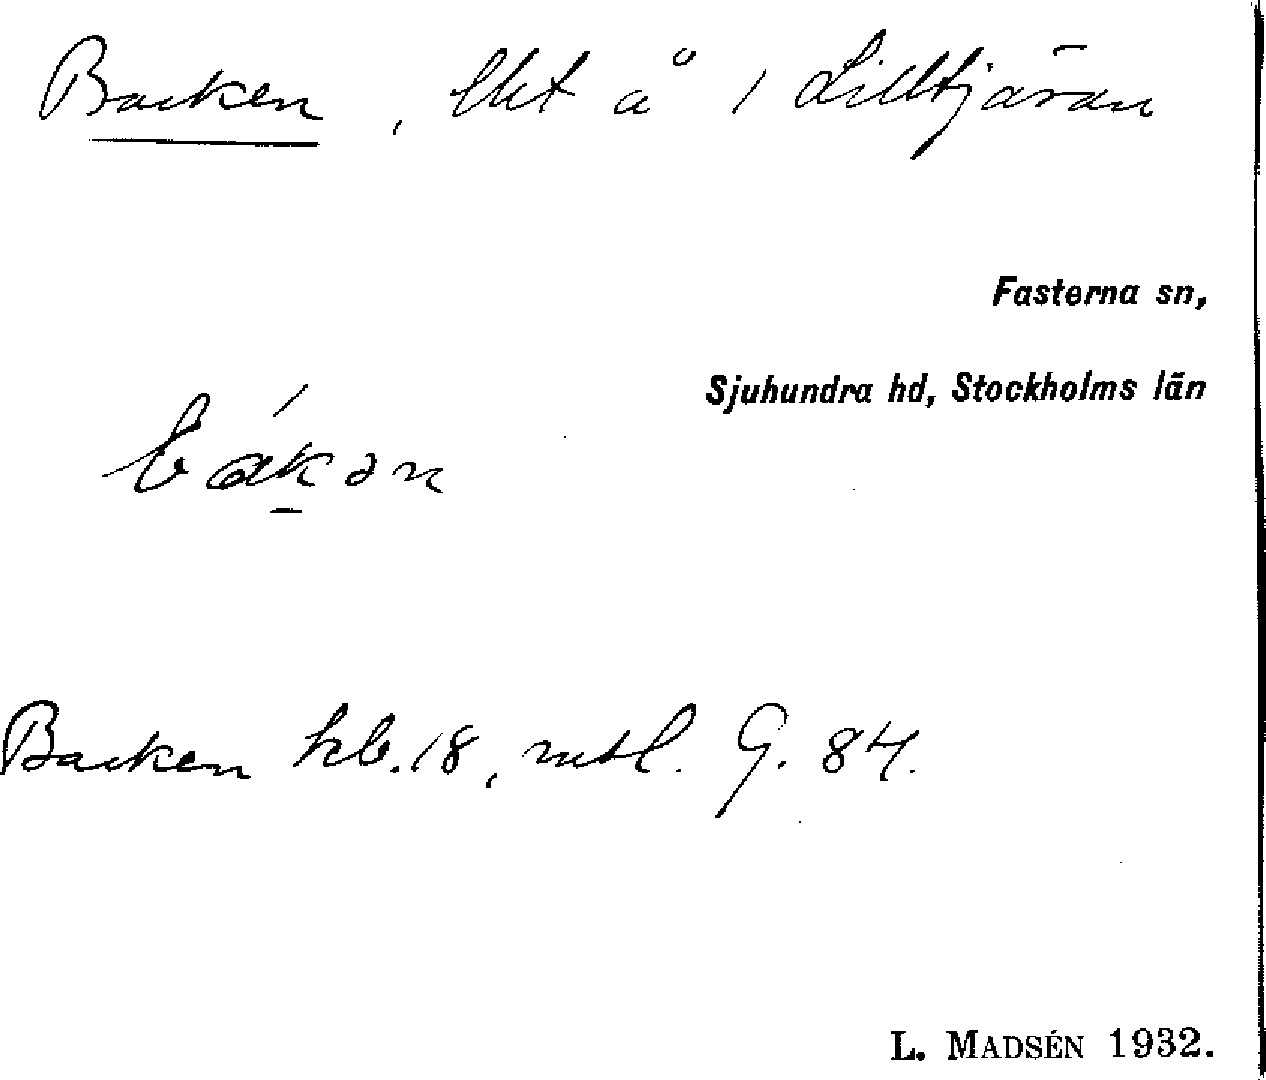 Backen, lht å 1 Lilltjäran
Fasterna sn,
Sjuhundra hd, Stockholms län
Backen kb. 18, mtl. G. 84.
L. MADSÉN 1932.